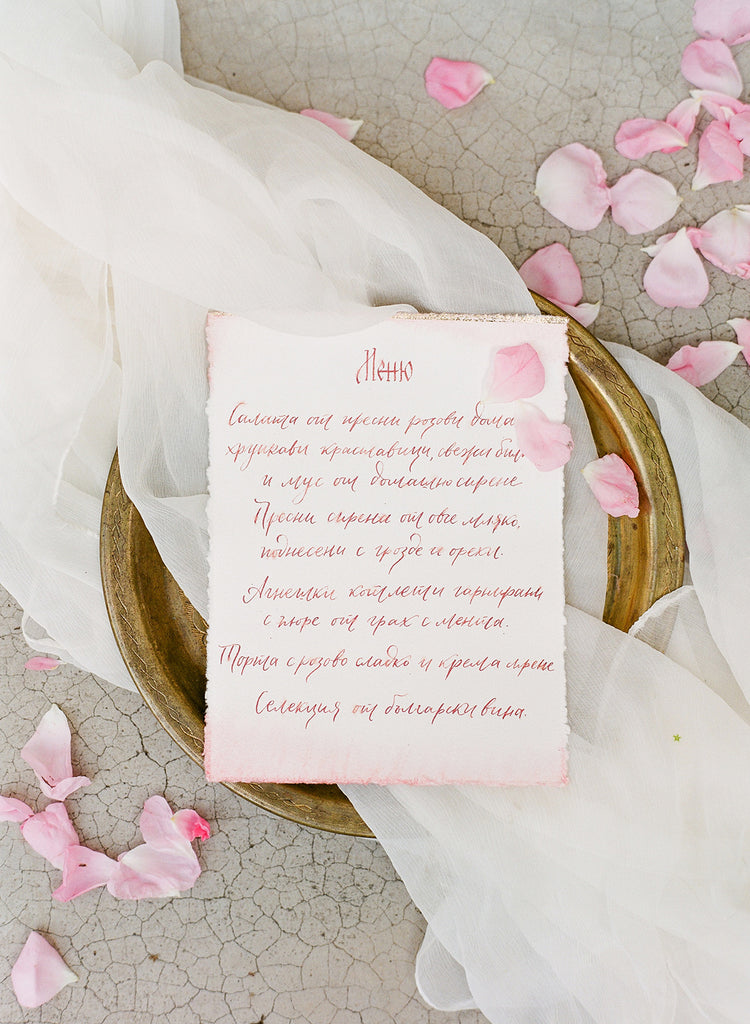 Меню
Салата от пресни розови дома
хрупкави краставици, свежи бил
и мус от домашно сирене
Пресни сирена от овче мляко,
поднесени с грозде и орехи.
Агнешки котлети гарнирани
с пюре от грах с мента.
Торта с розово сладко и крема сирене
Селекция от български вина.